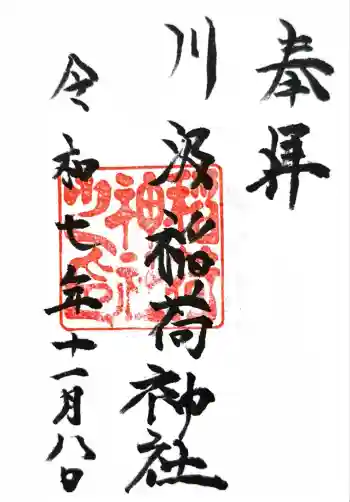 奉拝
川汲稲荷神社
令和七年十一月八日